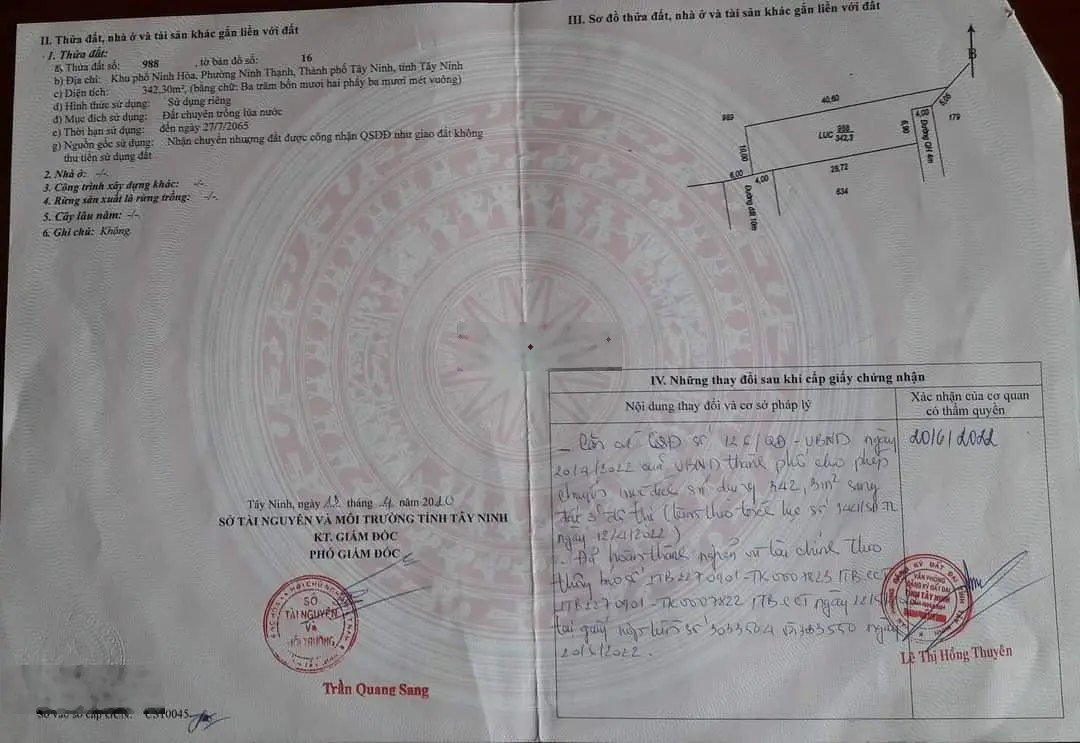 II. Thửa đất, nhà ở và tài sản khác gắn liền với đất
1. Thửa đất:
a) Thửa đất số: 988 , tờ bản đồ số: 16
b) Địa chỉ: Khu phố Ninh Hòa, Phường Ninh Thạnh, Thành phố Tây Ninh, tỉnh Tây Ninh
c) Diện tích: 342.30m², (bằng chữ: Ba trăm bốn mươi hai phẩy ba mươi mét vuông)
d) Hình thức sử dụng: Sử dụng riêng
đ) Mục đích sử dụng: Đất chuyên trồng lúa nước
e) Thời hạn sử dụng: đến ngày 27/7/2065
g) Nguồn gốc sử dụng: Nhận chuyển nhượng đất được công nhận QSDĐ như giao đất không
thu tiền sử dụng đất
2. Nhà ở: -/-
3. Công trình xây dựng khác: -/-
4. Rừng sản xuất là rừng trồng: -/-
5. Cây lâu năm: -/-
6. Ghi chú: Không
Tây Ninh, ngày tháng năm 2020
SỞ TÀI NGUYÊN VÀ MÔI TRƯỜNG TỈNH TÂY NINH
KT. GIÁM ĐỐC
PHÓ GIÁM ĐỐC
SỞ
TÀI NGUYÊN
VÀ
MÔI TRƯỜNG
Trần Quang Sang
Số vào sổ cấp GCN: CS10045
III. Sơ đồ thửa đất, nhà ở và tài sản khác gắn liền với đất
B
989
40,60
4,00
5,05
179
LUC 988
342,3
6,90
Đường QH 4m
10,00
6,00
4,00
28,72
634
Đường đất 10m
IV. Những thay đổi sau khi cấp giấy chứng nhận
Nội dung thay đổi và cơ sở pháp lý
Xác nhận của cơ quan
có thẩm quyền
- Căn cứ QSĐ số 126/QĐ-UBND ngày
20/4/2022 của UBND thành phố cho phép
chuyển mục đích sử dụng 342,3m² sang
đất ở đô thị
ngày 12/4/2022)
. Đã hoàn thành nghĩa vụ tài chính theo
thông báo số
ngày
20/5/2022.
20/6/2022
VĂN PHÒNG
ĐĂNG KÝ ĐẤT ĐAI
TỈNH TÂY NINH
Lê Thị Hồng Thuyên